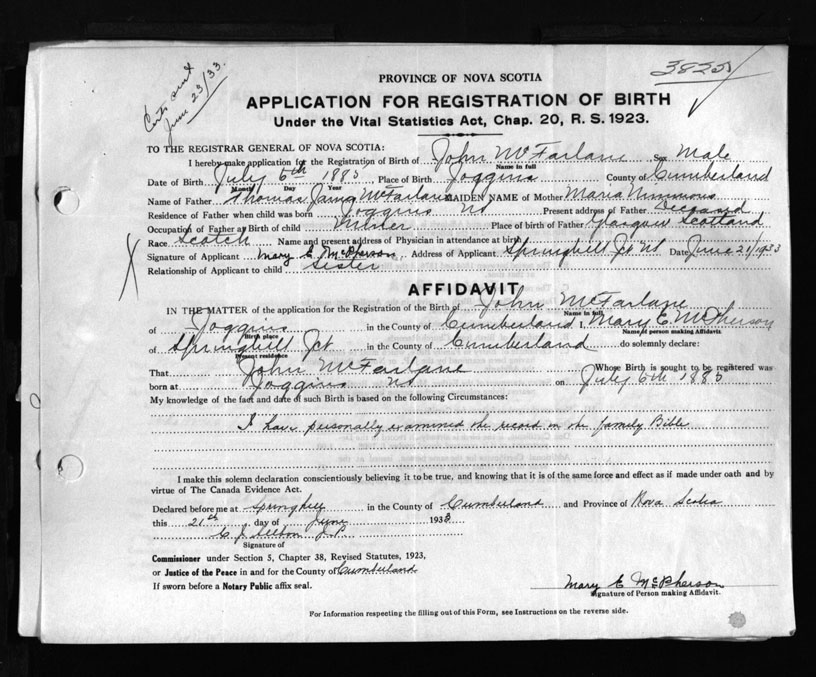 Certs sent
June 23/33.
3825
PROVINCE OF NOVA SCOTIA
APPLICATION FOR REGISTRATION OF BIRTH
Under the Vital Statistics Act, Chap. 20, R. S. 1923.
TO THE REGISTRAR GENERAL OF NOVA SCOTIA:
I hereby make application for the Registration of Birth of John McFarlane Sex Male
Name in full
Date of Birth July 6th 1885 Place of Birth Joggins County of Cumberland
Month Day Year
Name of Father Thomas McFarlane MAIDEN NAME of Mother Maria
Residence of Father when child was born Joggins NS Present address of Father Deceased
Occupation of Father at Birth of child Miner Place of birth of Father Glasgow Scotland
Race Scotch Name and present address of Physician in attendance at birth
Signature of Applicant Mary E McPherson Address of Applicant Springhill Jct NS Date June 21/1933
Relationship of Applicant to child Sister
AFFIDAVIT
IN THE MATTER of the application for the Registration of the Birth of John McFarlane
Name in full
of Joggins in the County of Cumberland I, Mary E. McPherson
Birth place Name of person making Affidavit
of Springhill Jct in the County of Cumberland do solemnly declare:
Present residence
That John McFarlane Whose Birth is sought to be registered was
born at Joggins NS on July 6th 1885
My knowledge of the fact and date of such Birth is based on the following Circumstances:
I have personally examined the record in the family Bible
I make this solemn declaration conscientiously believing it to be true, and knowing that it is of the same force and effect as if made under oath and by
virtue of The Canada Evidence Act.
Declared before me at Springhill in the County of Cumberland and Province of Nova Scotia
this 21st day of June 1933
C. J. J.P.
Signature of
Commissioner under Section 5, Chapter 38, Revised Statutes, 1923,
or Justice of the Peace in and for the County of Cumberland
If sworn before a Notary Public affix seal.
Mary E McPherson
Signature of Person making Affidavit.
For Information respecting the filling out of this Form, see Instructions on the reverse side.